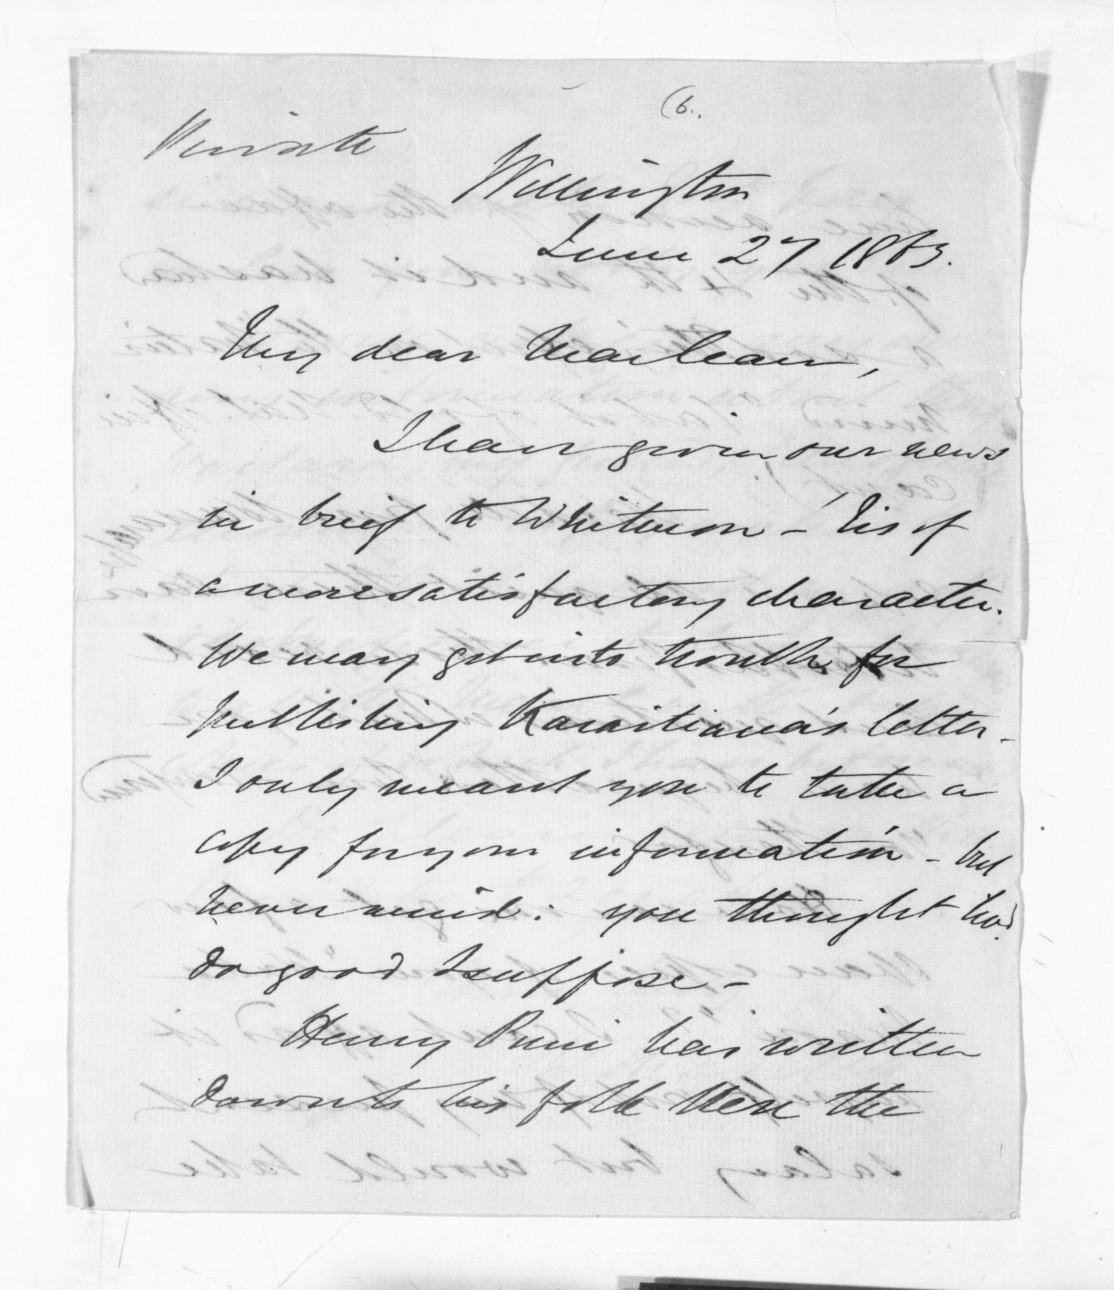 (6.
Private
Wellington
June 27 1863.
My dear MacLean,
I have given our news
in brief to Whitmore - 'Tis of
a more satisfactory character.
We may get into trouble for
publishing Karaitiana's letter -
I only meant you to take a
copy for your information - but
never mind: you thought 'two'd
do good I suppose -
Henry Puni has written
down to his folk here the